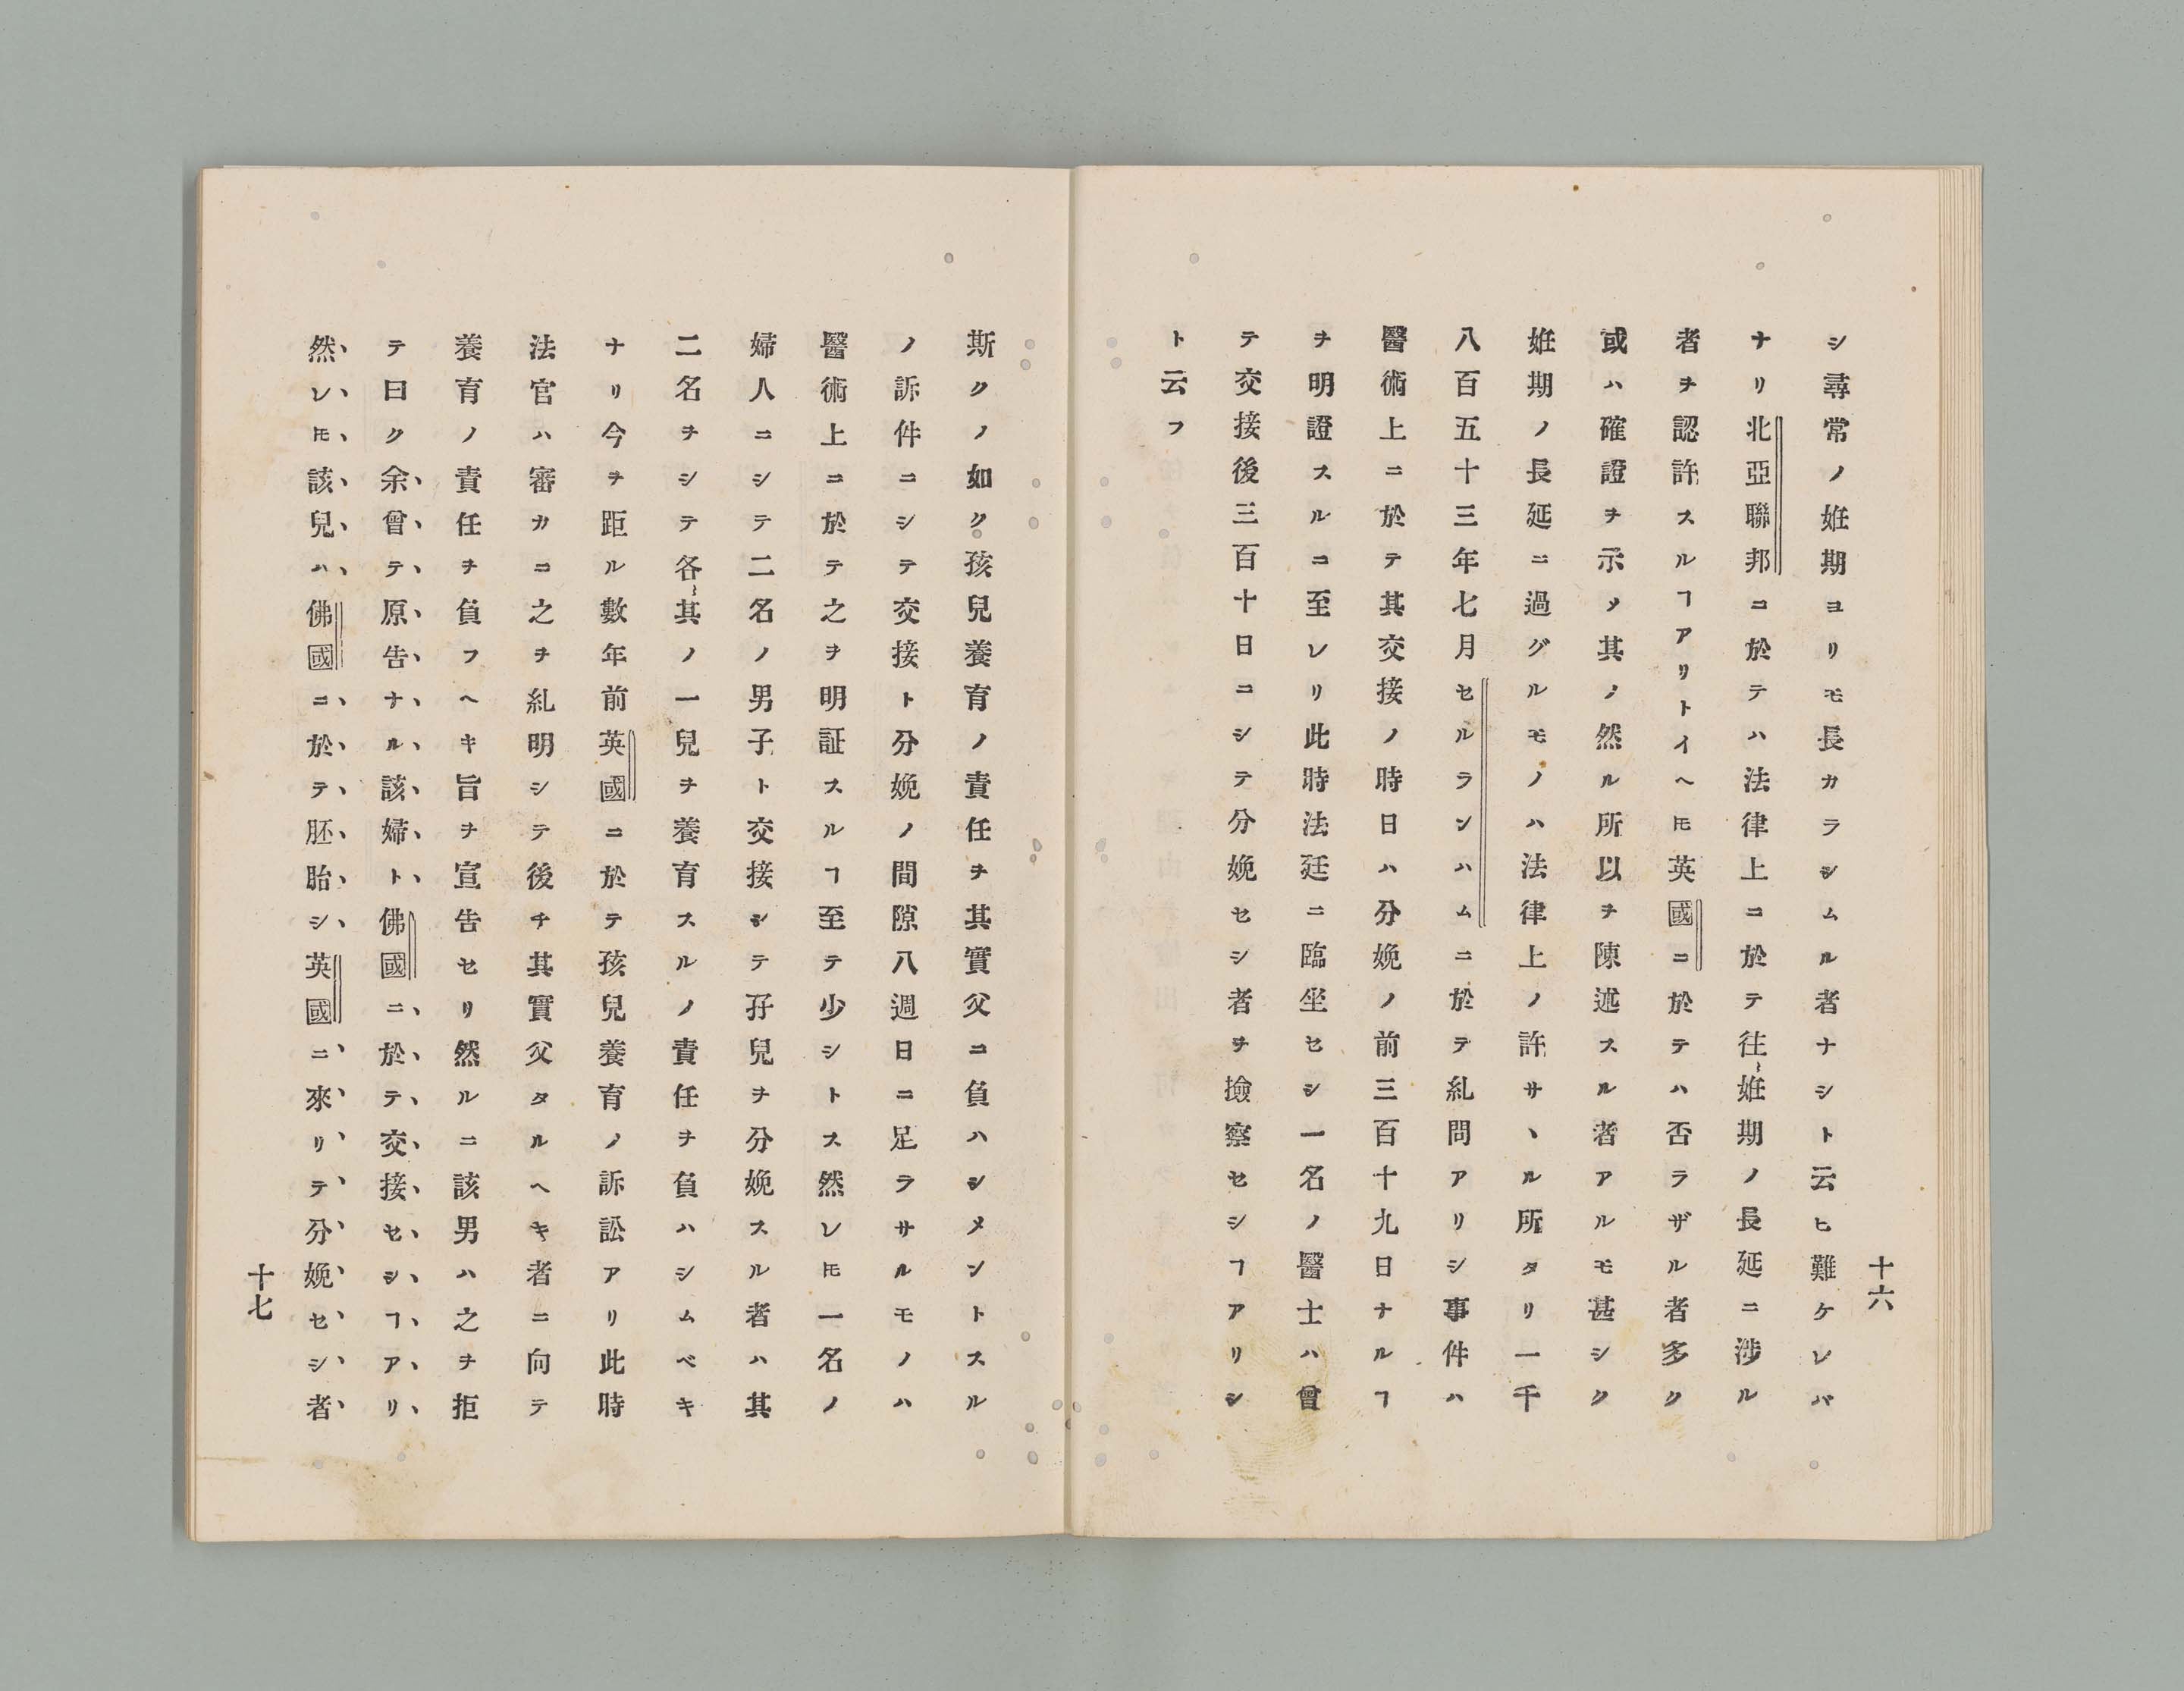 十六
シ尋常ノ姙期ヨリモ長カラシムル者ナシト云ヒ難ケレバ
ナリ北亞聯邦ニ於テハ法律上ニ於テ往〻姙期ノ長延ニ渉ル
者ヲ認許スルヿアリトイヘ𪜈英國ニ於テハ否ラザル者多ク
或ハ確證ヲ示メ其ノ然ル所以ヲ陳述スル者アルモ甚シク
姙期ノ長延ニ過グルモノハ法律上ノ許サヽル所タリ一千
八百五十三年七月セルランハムニ於テ糺問アリシ事件ハ
醫術上ニ於テ其交接ノ時日ハ分娩ノ前三百十九日ナルヿ
ヲ明證スルニ至レリ此時法廷ニ臨坐セシ一名ノ醫士ハ曾
テ交接後三百十日ニシテ分娩セシ者ヲ撿察セシヿアリシ
ト云フ
斯クノ如ク孩兒養育ノ責任ヲ其實父ニ負ハシメントスル
ノ訴件ニシテ交接ト分娩ノ間隙八週日ニ足ラサルモノハ
醫術上ニ於テ之ヲ明証スルヿ至テ少シトス然レ𪜈一名ノ
婦人ニシテ二名ノ男子ト交接シテ孖兒ヲ分娩スル者ハ其
二名ヲシテ各〻其ノ一兒ヲ養育スルノ責任ヲ負ハシムベキ
ナリ今ヲ距ル數年前英國ニ於テ孩兒養育ノ訴訟アリ此時
法官ハ審カニ之ヲ糺明シテ後チ其實父タルヘキ者ニ向テ
養育ノ責任ヲ負フヘキ旨ヲ宣告セリ然ルニ該男ハ之ヲ拒
テ曰ク余曾テ原告ナル該婦ト佛國ニ於テ交接セシヿアリ
然レ𪜈該兒ハ佛國ニ於テ胚胎シ英國ニ來リテ分娩セシ者
十七